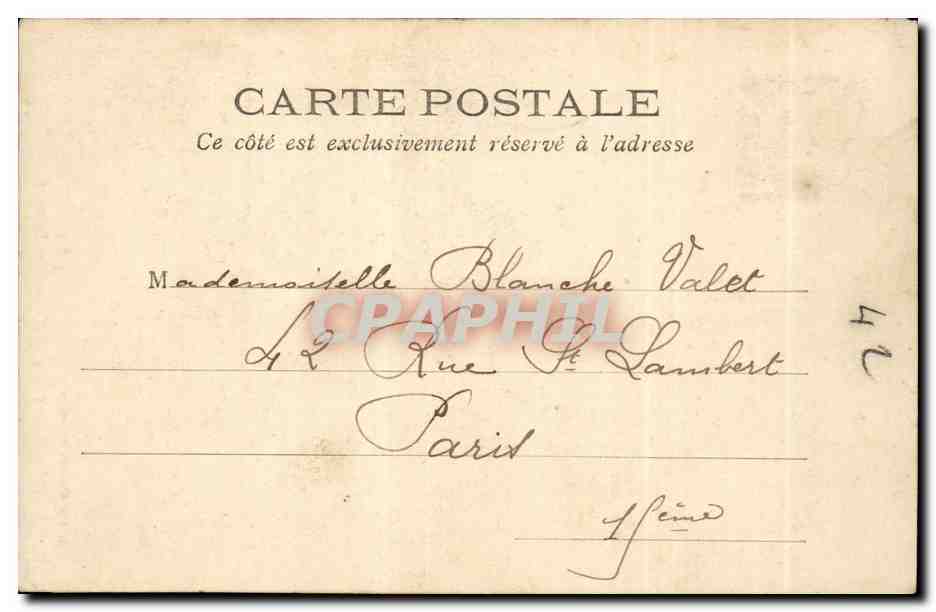 CARTE POSTALE
Ce côté est exclusivement réservé à l'adresse
Mademoiselle Blanche Valet
42 Rue St Lambert
Paris
15ème
42
CPAPHIL